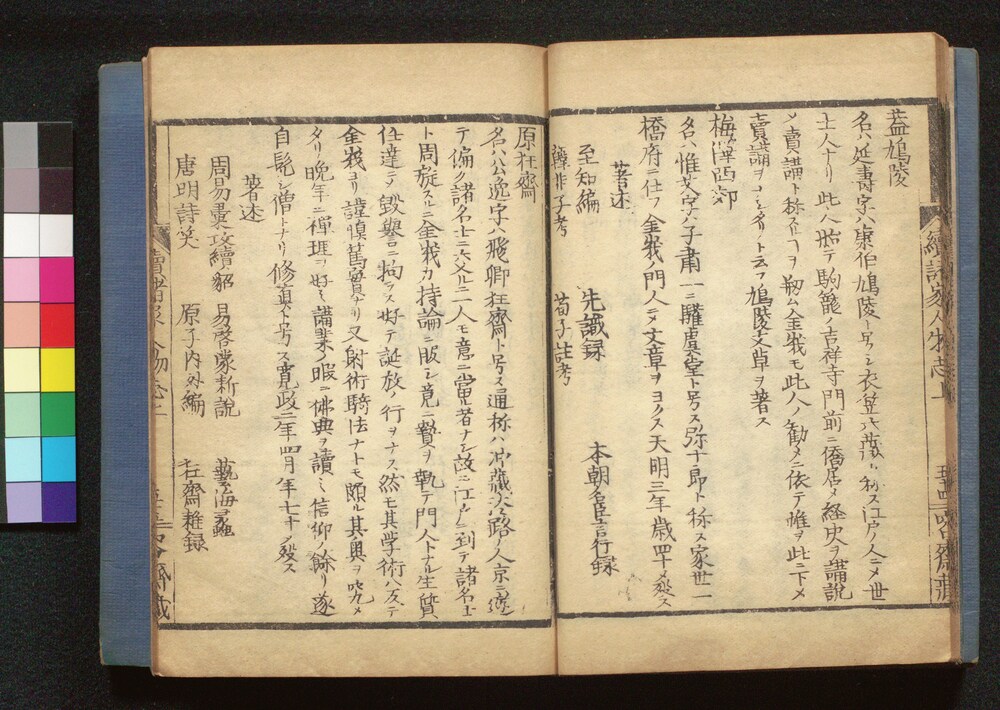 葢鳩陵
名ハ延壽字ハ康伯鳩陵ト号シ衣笠 ト称スコノ人ニメ世
士人ナリ此人始テ駒籠ノ吉祥寺門前ニ僑居メ経史ヲ講説
メ賣講ト称ス 金峩モ此人ノ勧メニ依テ帷ヲ此ニ下メ
賣講ヲ ト云フ鳩陵文草ヲ著ス
梅澤西郊
名ハ惟 字ハ子肅一ニ騶虞堂ト号ス弥十郎ト称ス家世一
橋府ニ仕フ金峩ノ門人ニメ文章ヲヨクス天明三年歳四十メ殁ス
著述
至知編 先識録 本朝名臣言行録
韓非子考 荀子 考
原狂齋
名ハ公逸字ハ飛卿狂齋ト号ス通称ハ 路ノ人京ニ遊
テ徧ク諸名士ニ交ルニ一人モ意ニ當ル者ナシ故ニ江戸ニ到テ諸名士
ト周旋スルニ金峩カ持論ニ服シ竟ニ贄ヲ執テ門人トナル生質
任達ニテ毀譽ニ拘ラス好テ誕放ノ行ヲナス然モ其学術ハ反テ
金峩ヨリ謹慎篤實ナリ又射術騎法ナトモ頗ル其奥ヲ究メ
タリ晩年ニ禅理ヲ好ミ講業ノ暇ニ佛典ヲ讀ミ信仰ノ餘リ遂
自髡シ僧トナリ修真ト号ス寛政二年四月年七十 殁ス
著述
周易彙攷續貂 易啓蒙新説 藝海蠡
唐明詩笑 原子内外編 狂齋雑録